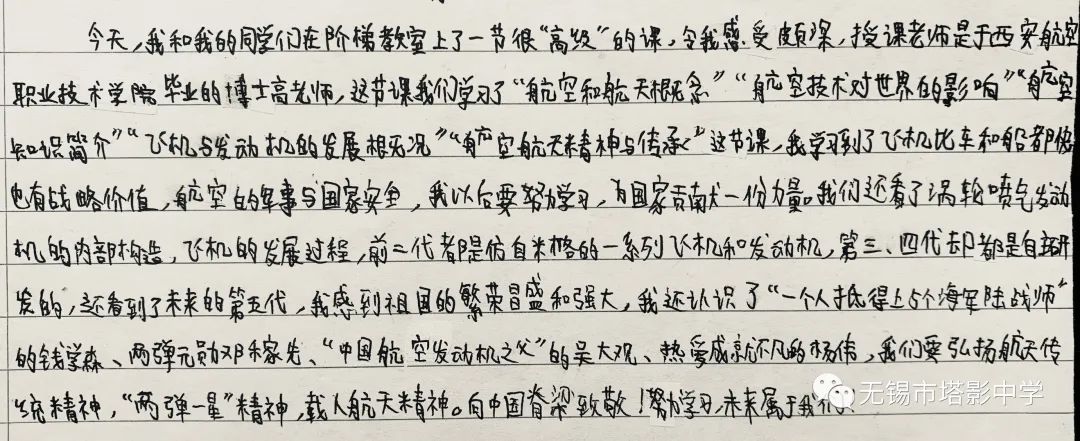 今天,我和我的同学们在阶梯教室上了一节很“高级”的课,令我感受颇深,授课老师是于西安航空
职业技术学院毕业的博士高老师,这节课我们学习了“航空和航天概念”“航空技术对世界的影响”“航空
知识简介”“飞机与发动机的发展概况”“航空航天精神与传承”这节课,我学习到了飞机比车和船都快
也有战略价值,航空的军事与国家安全,我以后要努力学习,为国家贡献一份力量。我们还看了涡轮喷气发动
机的内部构造,飞机的发展过程,前二代都是仿自米格的一系列飞机和发动机,第三、四代却都是自主研
发的,还看到了未来的第五代,我感到祖国的繁荣昌盛和强大,我还认识了“一个人抵得上5个海军陆战师”
的钱学森、两弹元勋邓稼先、“中国航空发动机之父”的吴大观、热爱成就不凡的杨伟,我们要弘扬航天传
统精神,“两弹一星”精神,载人航天精神。向中国脊梁致敬!努力学习,未来属于我们!
无锡市塔影中学